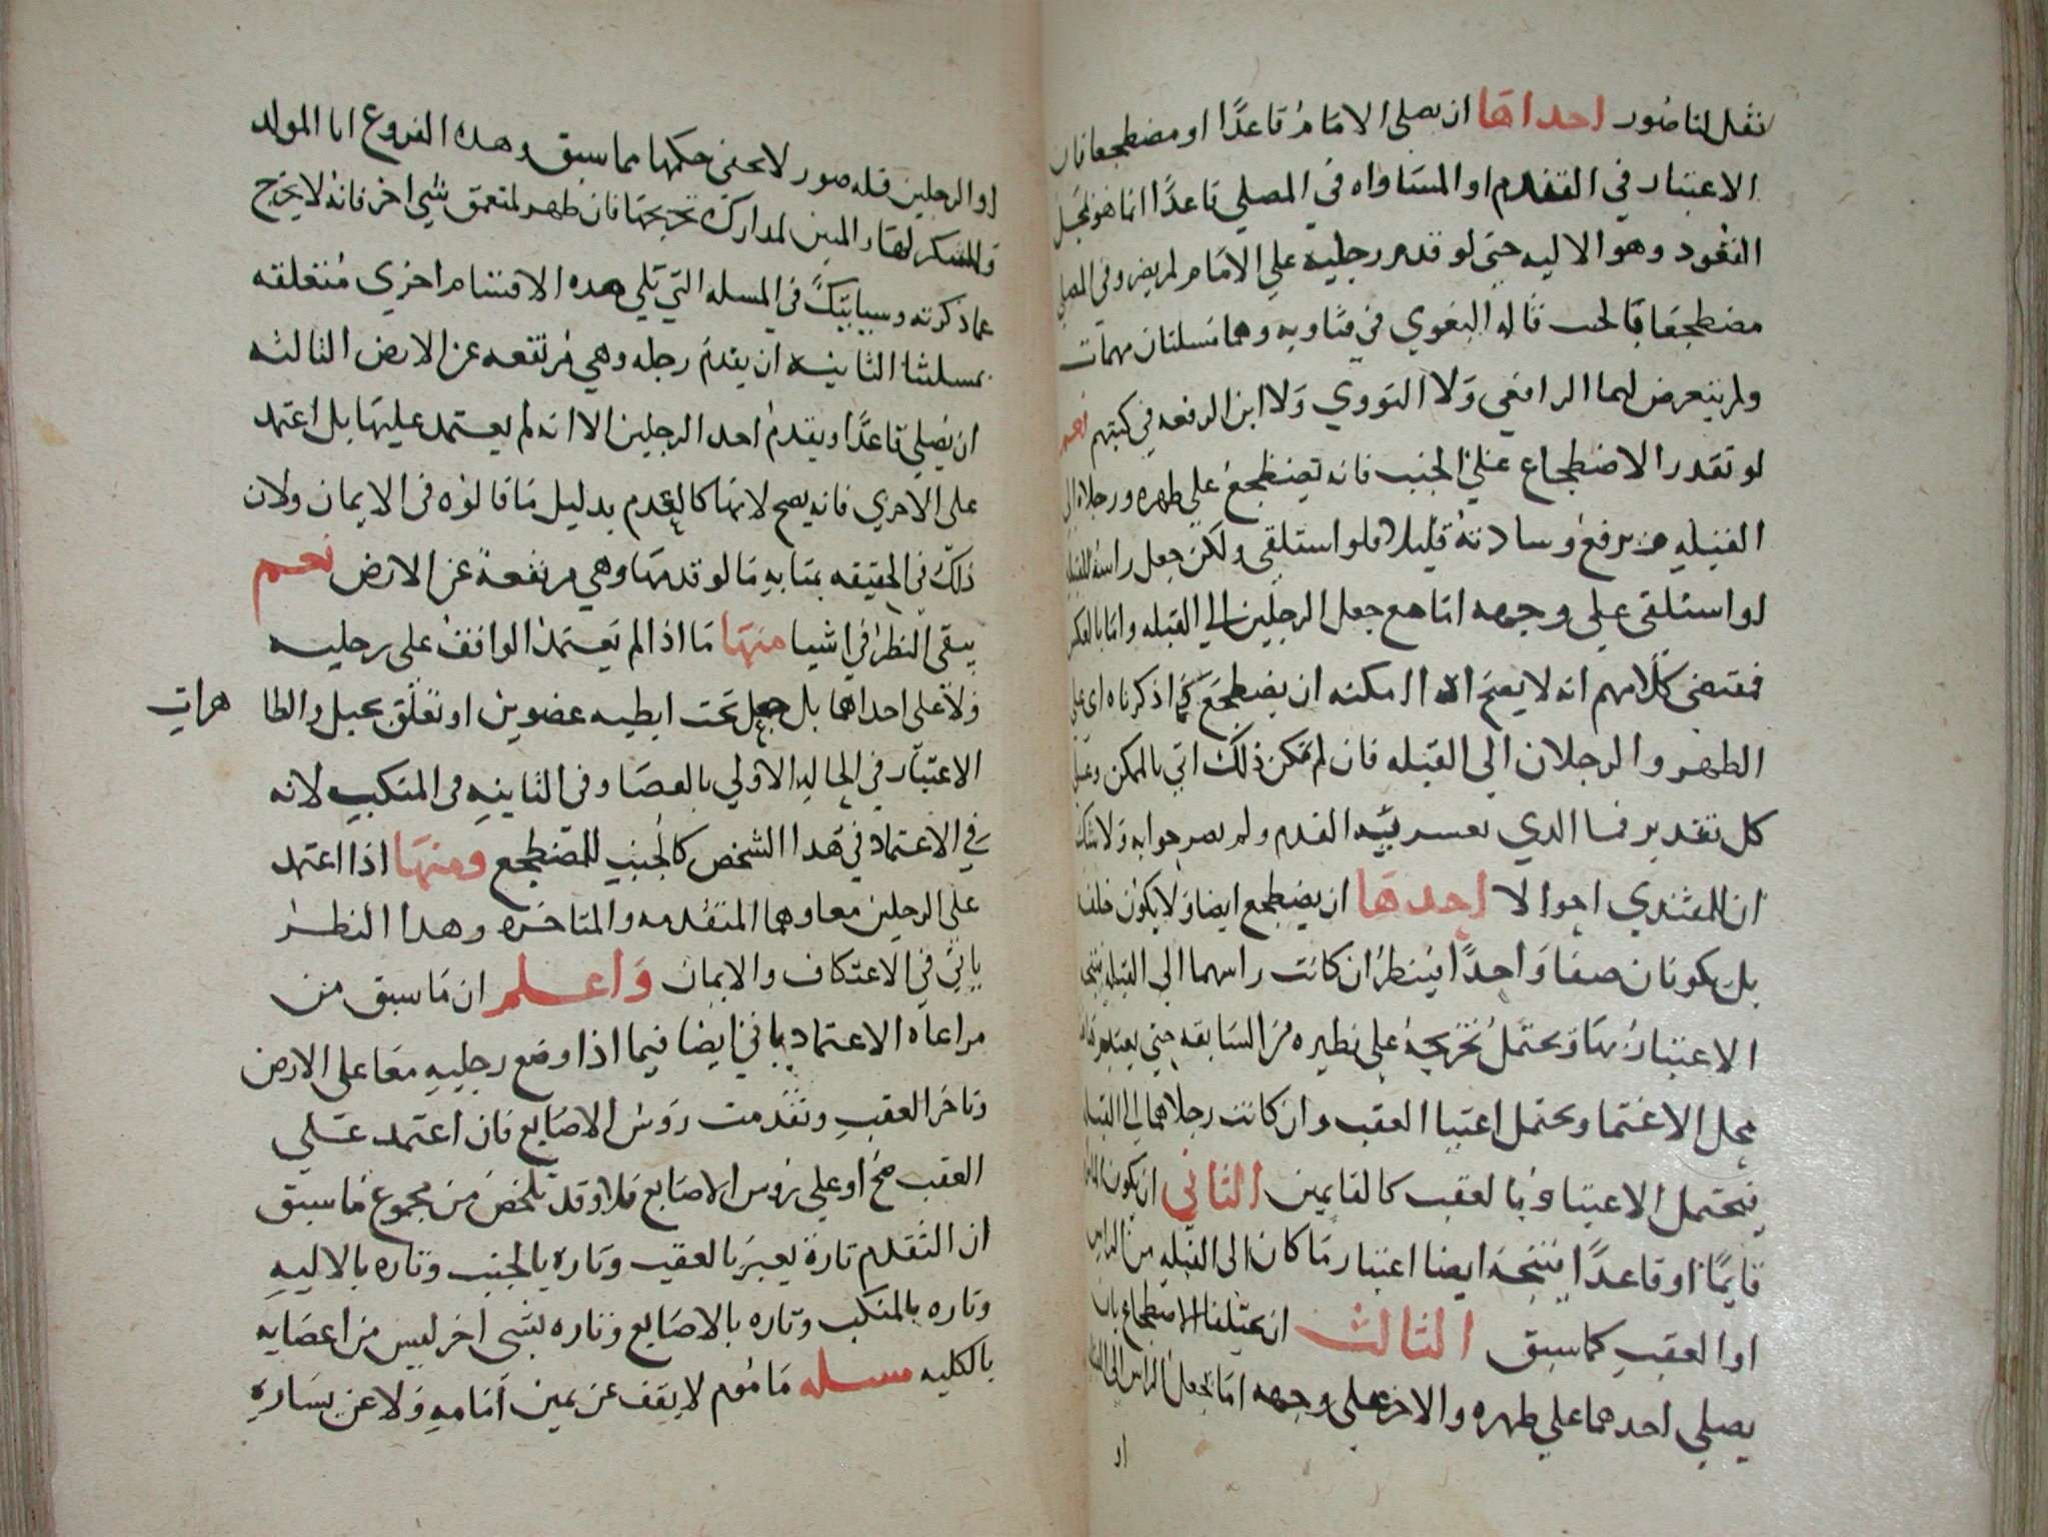 نقل لنا صور احداها ان يصلي الامام قاعدًا او مضطجعا فان
الاعتبار في التقدم او المساواه في المصلي قاعدًا انما هو بمحل
القعود وهو الاليه حتى لو قدم رجليه على الامام لم يضر وفي المصلي
مضطجعا بالجنب قاله البغوي في فتاويه وهما مسلتان مهمات
ولم يتعرض لهما الرافعي ولا النووي ولا ابن الرفعه في كتبهم نعم
لو تعذر الاضطجاع على الجنب فانه يضطجع على ظهره ورجلاه الى
القبله مع رفع وسادته قليلا فلو استلقى ولكن جعل راسه للقبله
او استلقى على وجهه اما مع جعل الرجلين الي القبله واما بالعكس
فمقتضى كلامهم انه لا يصح اذا امكنه ان يضطجع كما ذكرناه اي على
الظهر والرجلان الى القبله فان لم تمكن ذلك اتى بالممكن وعلى
كل تقدير فما الذي يعسر به القدم ولم يصر جوابه ولا شك
ان للمقتدي احوالا احدها ان يضطجع ايضا ولا يكون خلفه
بل يكونان صفا واحدًا فينظر ان كانت راسهما الى القبله فيتجه
الاعتبار بها ويحتمل تخريجه على نظيره من السابقه حتى يعتبر
محل الاعتما ويحتمل اعتبا العقب وان كانت رجلاهما الى القبله
فيحتمل الاعتبا وبالعقب كالقايمين الثاني ان يكون الماموم
قايمًا او قاعدًا فيتجه ايضا اعتبار ما كان الى القبله من الراس
او العقب كما سبق الثالث ان يختلفا الاضطجاع بان
يصلي احدهما على ظهره والاخر على وجهه اما بجعل الراس الى القبله
او
او الرجلين فله صور لا يخفى حكمها مما سبق وهذه الفروع انا المولد
والمبتكر لها والمبين لمدارك تخريجها فان ظهر لمتعمق شي اخر فانه لا يخرج
عما ذكرته وسياتيك في المسله التي تلي هذه الاقسام اخرى متعلقه
بمسلتنا الثانيه ان يقدم رجله وهي مرتفعه عن الارض الثالثه
ان يصلي قاعدًا ويقدم احد الرجلين الا انه لم يعتمد عليها بل اعتمد
على الاخرى فانه يصح لانها كالعدم بدليل ما قالوه في الايمان ولان
ذلك في الحقيقه بمثابه ما لو قدمها وهي مرتفعة عن الارض نعم
يبقى النظر في اشيا منها ما اذا لم يعتمد الواقف على رجليه
ولا على احداهما بل جعل تحت ابطيه عضوين او تعلق بحبل والظا
هرات
الاعتبار في الحاله الاولي بالعصا وفي الثانيه في المنكب لانه
في الاعتماد في هذا الشخص كالجنب للمضطجع ومنها اذا اعتمد
على الرجلين معا وهما المتقدمه والمتاخره وهذا النظر
ياتي في الاعتكاف والايمان واعلم ان ما سبق من
مراعاه الاعتماد ياتي ايضا فيما اذا وضع رجليه معا على الارض
وتاخر العقب وتقدمت روس الاصابع فان اعتمد على
العقب صح او على روس الاصابع فلا وقد تلخص من مجموع ما سبق
ان التقدم تارة يعبر بالعقب وتاره بالجنب وتاره بالاليه
وتاره بالمنكب وتاره بالاصابع وتاره بشي اخر ليس من اعضايه
بالكليه مسله ماموم لا يقف عن يمين امامه ولا عن يساره